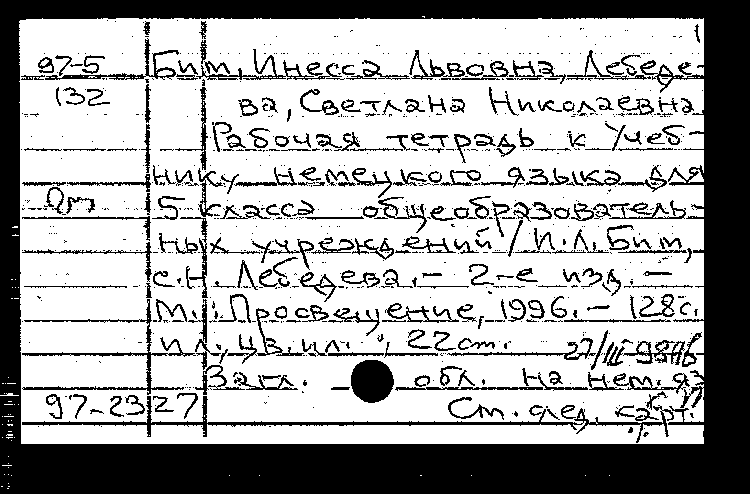 97-5 Бим, Инесса Львовна, Лебеде-
132 ва, Светлана Николаевна.
Рабочая тетрадь к учеб-
нику немецкого языка для
От 5 класса общеобразователь-
ных учреждений / И.Л. Бим,
С.Н. Лебедева. – 2-е изд. –
М.: Просвещение, 1996. – 128с.
ил., цв. ил. ; 22 см.
27/III-98
Загл. обл. на нем. яз
97-2327 См. след. карт.